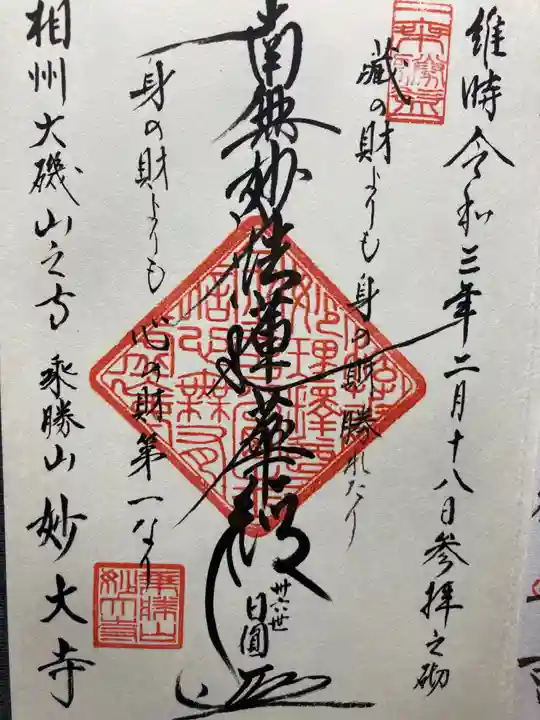 維時令和三年二月十八日参拝之砌
蔵の財よりも身の財勝れたり
南無妙法蓮華経
卅六世
日圓
身の財よりも心の財第一なり
相州大磯山之寺 永勝山 妙大寺